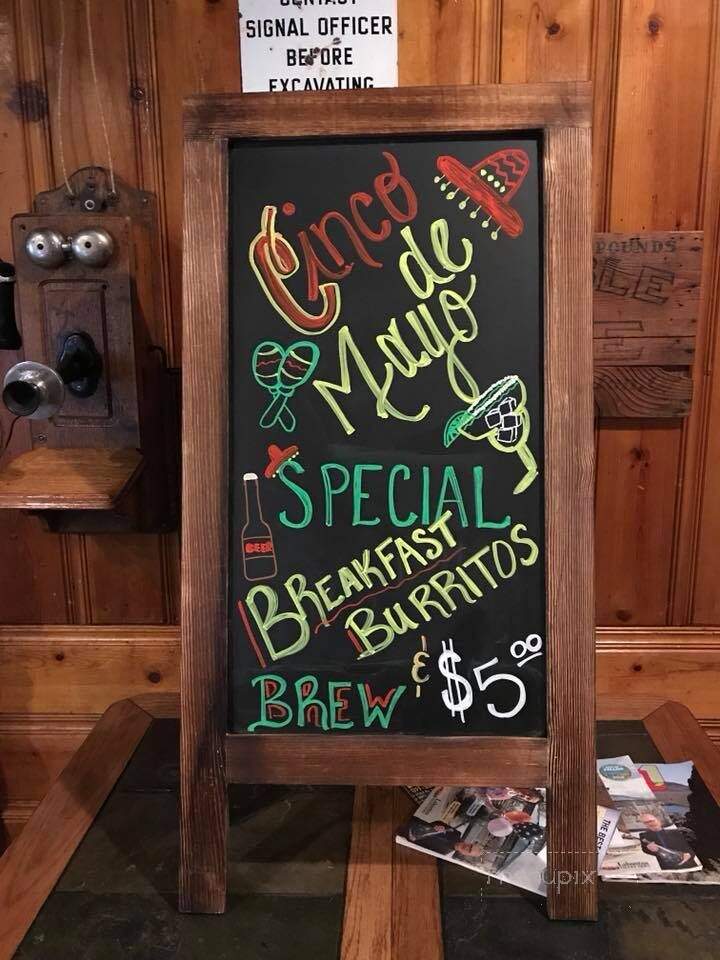 SIGNAL OFFICER
BEFORE
EXCAVATING
Cinco
de
Mayo
SPECIAL
BEER
BREAKFAST
BURRITOS
& $5.00
BREW
POUNDS
THE BEST